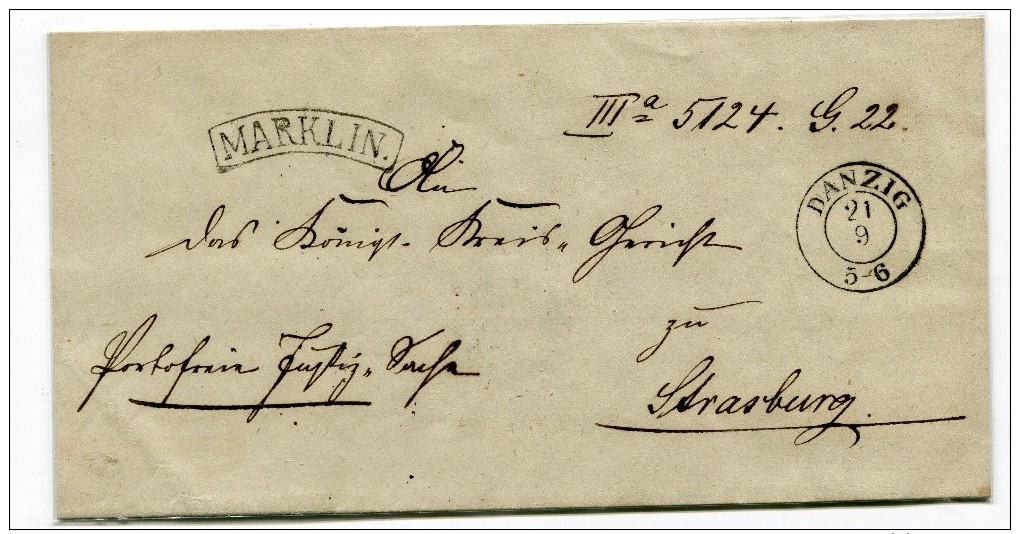 IIIª 5124. G. 22.
MARKLIN.
An
DANZIG
21
9
5-6
das Königl. Kreis-Gericht
zu
Portofreie Justiz-Sache
Strasburg.